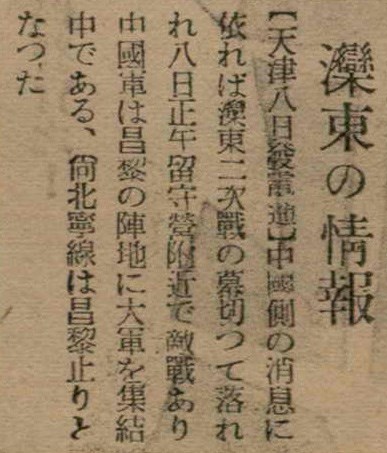 灤東の情報
【天津八日發電通】中國側の消息に
依れば灤東二次戰の幕切つて落れ
れ八日正午留守營附近で敵戰あり
中國軍は昌黎の陣地に大軍を集結
中である、尙北寧線は昌黎止りと
なつた